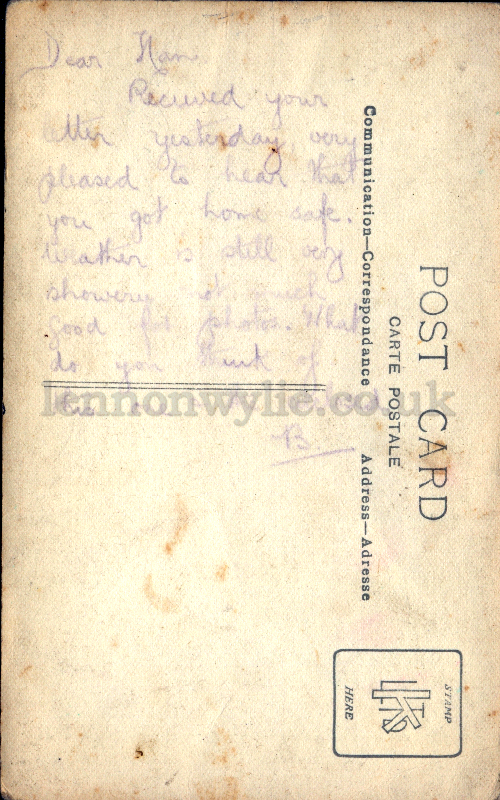 Dear Ham
Recieved your
letter yesterday very
pleased to hear that
you got home safe.
Weather is still very
showery not much
good for photos. What
do you think of
B
lennonwylie.co.uk
POST CARD
CARTE POSTALE
Communication—Correspondance
Address—Adresse
STAMP
HERE